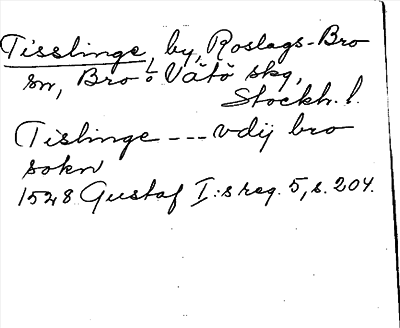 Tisslinge, by, Roslags-Bro
sn, Bro o. Vätö skg,
Stockh. l.
Tislinge --- vdij bro
sokn
1528 Gustaf I:s reg. 5, s. 204.